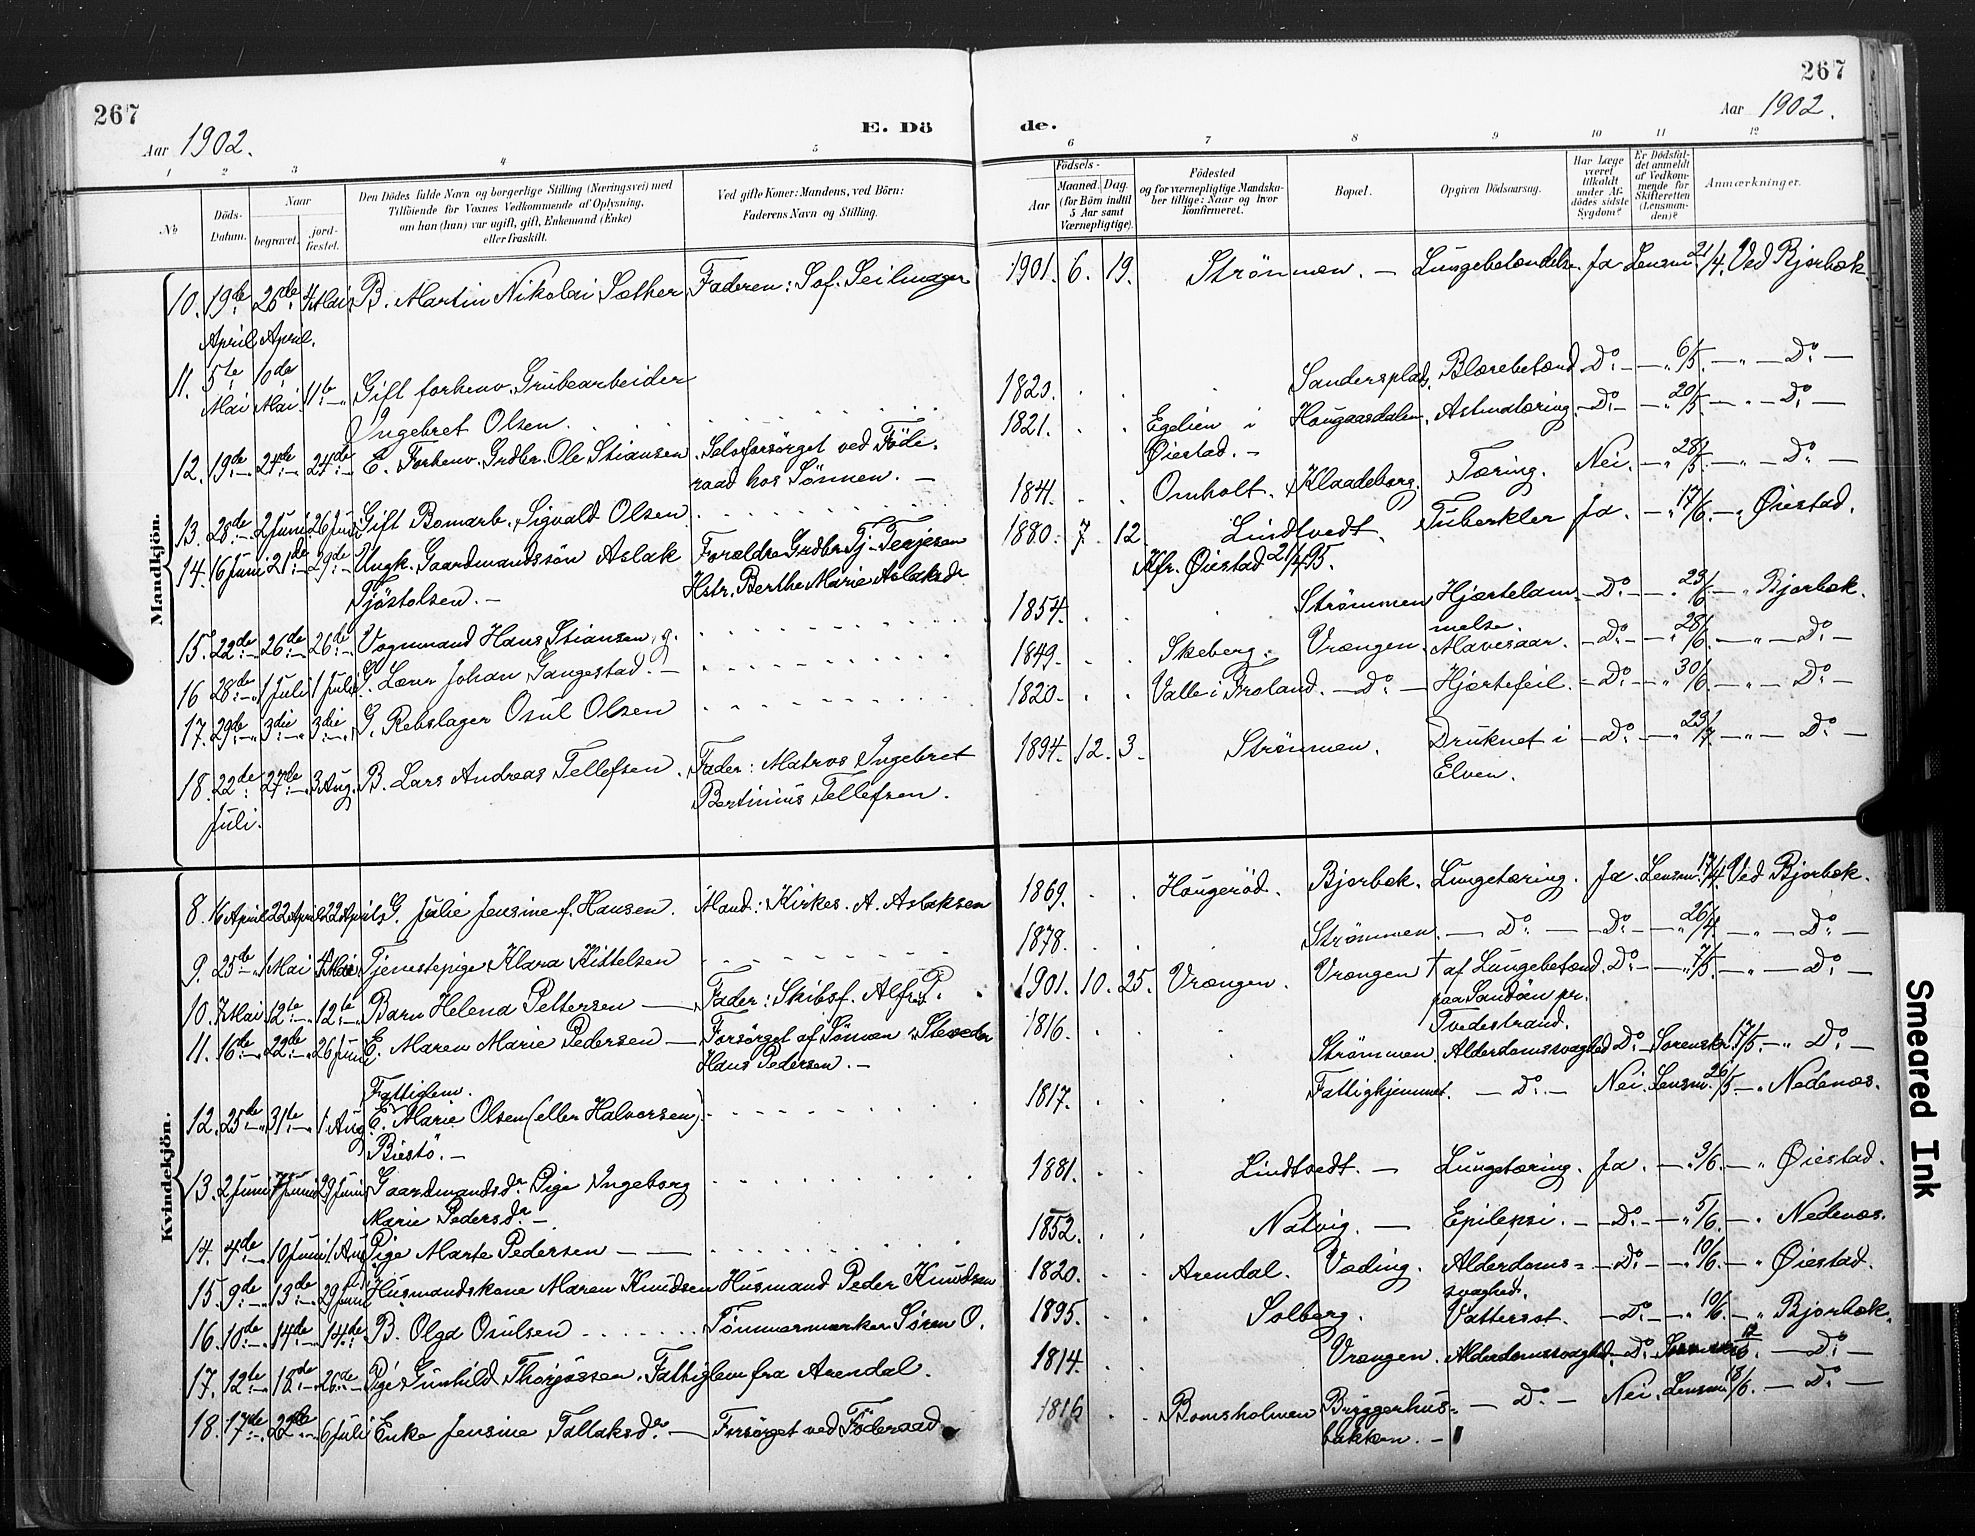 267
Aar 1902.
E. Dö
de.
267
Aar 1902.
1 2 3 4 5 6 7 8 9 10 11 12
No
Döds-Datum.
Naar
begravet.
jord-fæstet.
Den Dödes fulde Navn og borgerlige Stilling (Næringsvei) med
Tilföiende for Voxnes Vedkommende af Oplysning,
om han (hun) var ugift, gift, Enkemand (Enke)
eller fraskilt.
Ved gifte Koner: Mandens, ved Börn:
Faderens Navn og Stilling.
Födsels-
Aar
Maaned. Dag.
(for Börn indtil
5 Aar samt
Værnepligtige).
Födested
og for værnepligtige Mandska-
ber tillige: Naar og hvor
konfirmeret.
Bopæl.
Opgiven Dödsaarsag.
Har Læge
været
tilkaldt
under Af-
dödes sidste
Sygdom?
Er Dödsfal-
det anmeldt
af Vedkom-
mende for
Skifteretten
(Lensman-
den)?
Anmærkninger.
Mandkjön.
10. 19de April 26de April. 4 Mai B. Martin Nikolai Sæther Faderen: Sof. Seilmager 1901. 6. 19. Strömmen. — Lungebetændelse Ja Lensm. 21/4. Ved Bjorbæk.
11. 5te Mai 10de Mai 11te —„— Gift forhenv. Grubearbeider
Ingebret Olsen. 1823. Sandersplads. Blærebetænd. Do. — „ 6/5. — „ — Do —
12. 19de —„— 24de —„— 24de E. Forhenv. Grdbr. Ole Stiansen. Selvforsörget ved Föde-
raad hos Sönnen. — 1821. Egelien i
Øiestad. — Hougaasdalen. Astmatæring. — Do. — „ 20/5. — „ — Do —
13. 28de —„— 2 Juni 26 Juni Gift Bomarb. Sigvald Olsen 1841. Omholt. Klaadeborg. Tæring. Nei. — „ 28/5. — „ — Do. —
14. 16 Juni 21de —„— 29de —„— Ungk. Gaardmandssön Aslak
Tjöstolsen. — Forældre Grdbr. Tj. Terjesen
Hstr. Berthe Marie Aslaksdr 1880. 7. 12. Lindtvedt.
Kfr. Øiestad 21/4 95. Tuberkler Ja. — „ 17/6. — „ Øiestad.
15. 22de —„— 26de —„— 26de —„— Vognmand Hans Stiansen, g. 1854. Strömmen Hjertelam-
melse. — Do — — „ 23/6 — „ Bjorbæk.
16 28de —„— 1 Juli 1 Juli G. Lærer Johan Gangestad. — 1849. Skeberg. Vrængen. Mavesaar. — Do. — „ 28/6. — „ — Do. —
17. 29de —„— 3die —„— 3die —„— G. Rebslager Osul Olsen 1820. Valle i Froland. — Do. — Hjertefeil. — Do. — „ 30/6 — „ — Do. —
18. 22de Juli. 27de —„— 3 Aug. B. Lars Andreas Tellefsen. Fader: Matros Ingebret
Bertinius Tellefsen. 1894. 12. 3. Strömmen. Druknet i
Elven. — Do. — „ 23/7 — „ — Do —
Kvindekjön.
8. 16 April 22 April 22 April G. Julie Jensine f. Hansen. Mand: Kirkes. A. Aslaksen 1869. Hougeröd. Bjorbæk. Lungetæring. Ja. Lensm. 17/4. Ved Bjorbæk.
9. 25de —„— 1 Mai 4 Mai Tjenestepige Klara Kittelsen 1878. Strömmen. — Do. — — Do. — „ 26/4. — „ — Do —
10. 7 Mai 12te —„— 12te —„— Barn Helena Pettersen — Fader: Skibsf. Alfred P. 1901. 10. 25. Vrængen. Vrængen † af Lungebetænd.
paa Sandöen pr.
Tvedestrand. Do. — „ 7/5. — „ — Do. —
11. 16de —„— 22de —„— 26 Juni E. Maren Marie Pedersen — Forsörget af Sönnen Stuveder
Hans Pedersen. — 1816. Strömmen. Alderdomssvaghed Do. — Sorenskr. 17/5. — „ Do. —
12. 25de —„— 31te —„— 1 Aug. Fattiglem.
E. Marie Olsen (eller Halvorsen)
Biestö. — 1817. Fattighjemmet. — Do. — Nei. Lensm. 26/5 — „ Nedenæs.
13. 2 Juni 7 Juni 29 Juni Gaardmandsdr. Pige Ingeborg
Marie Pedersdr. — 1881. Lindtvedt. — Lungetæring. Ja. — „ 3/6. — „ Øiestad.
14. 4de —„— 10 Juni. 1 Aug. Pige Marte Pedersen — — 1852. Natvig. — Epilepsi. — Do. — „ 5/6. — „ Nedenæs.
15. 9de —„— 13de —„— 29 Juni Husmandskone Maren Knudsen Husmand Peder Knudsen 1820. Arendal. Væding. Alderdoms-
svaghed. — Do. — „ 10/6. — „ Øiestad.
16. 10de —„— 14de —„— 14de. B. Olga Osulsen Tömmermerker Sören O. 1895. Solberg. Vattersot. — Do. — „ 10/6. — „ Bjorbæk.
17. 12te —„— 18de —„— 26de —„— Pige Gunhild Thorjössen. Fattiglem fra Arendal. 1814. Vrængen. Alderdomssvaghed. Do. Sorenskr. — Do. —
18. 17de —„— 22de —„— 6 Juli Enke Jensine Tallaksdr. — Forsörget ved Föderaad 1816 Bomsholmen Bryggerhus-
bakken. — — Do. — Nei. Lensm. 18/6. — Do. —
Smeared Ink